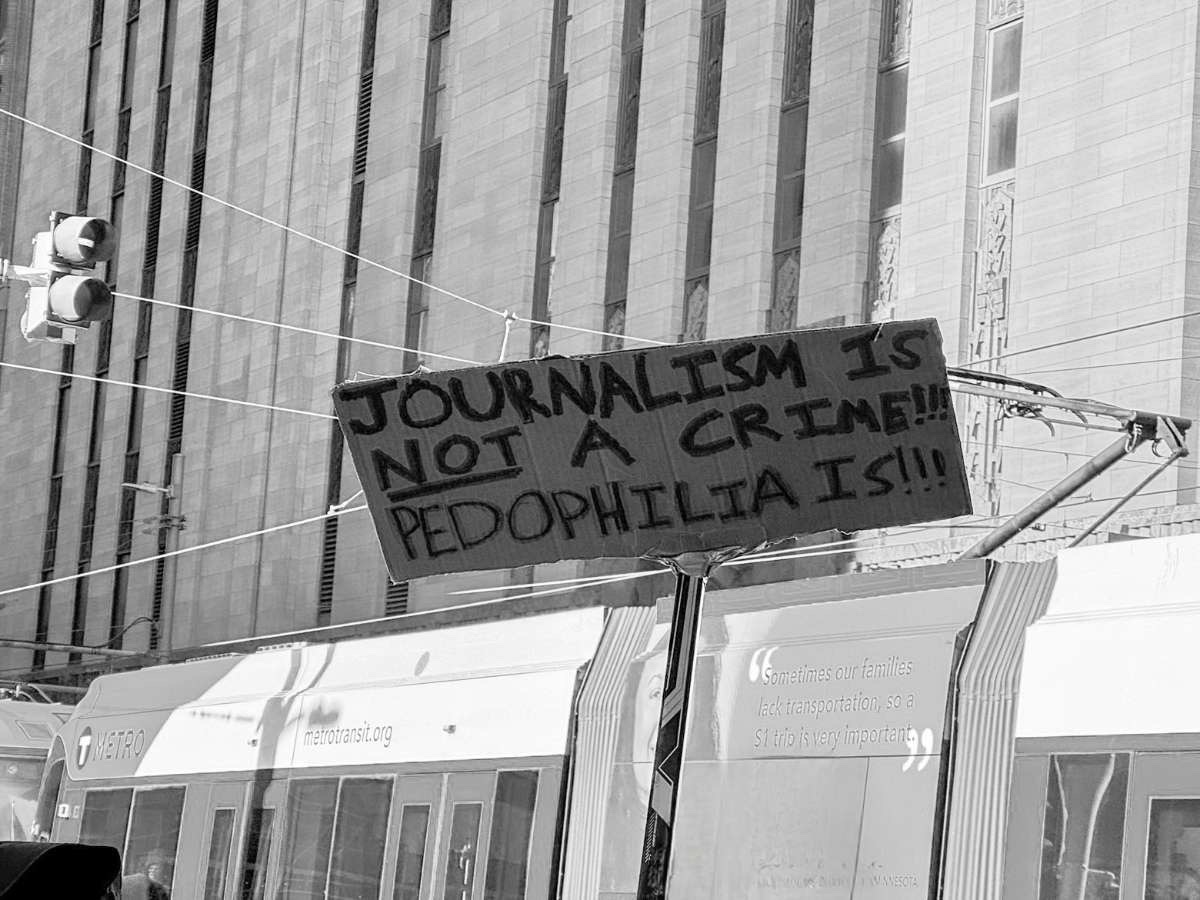 JOURNALISM IS
NOT A CRIME!!!
PEDOPHILIA IS!!!
“Sometimes our families
lack transportation, so a
$1 trip is very important.”
metrotransit.org
T METRO
MINNESOTA